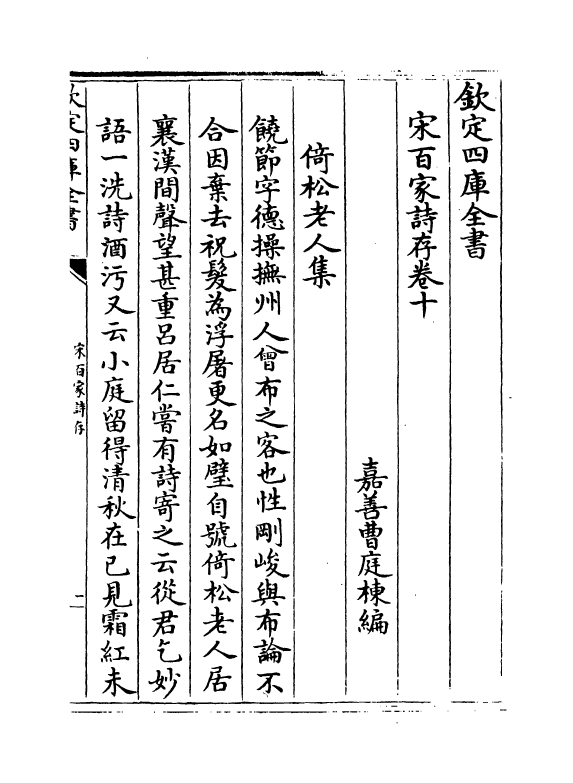 欽定四庫全書
宋百家詩存卷十
嘉善曹庭棟編
倚松老人集
饒節字德操撫州人曾布之客也性剛峻與布論不
合因棄去祝髮為浮屠更名如璧自號倚松老人居
襄漢間聲望甚重呂居仁嘗有詩寄之云從君乞妙
語一洗詩酒污又云小庭留得清秋在已見霜紅未
欽定四庫全書
宋百家詩存
二